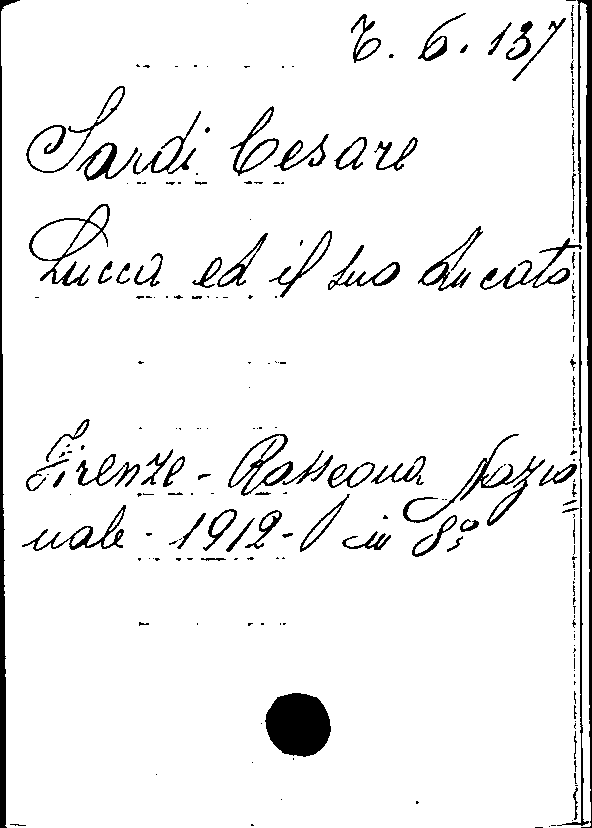 T. 6. 137
Sardi Cesare
Lucca ed il suo ducato
Firenze - Rassegna Nazio=
nale - 1912 - in 8º